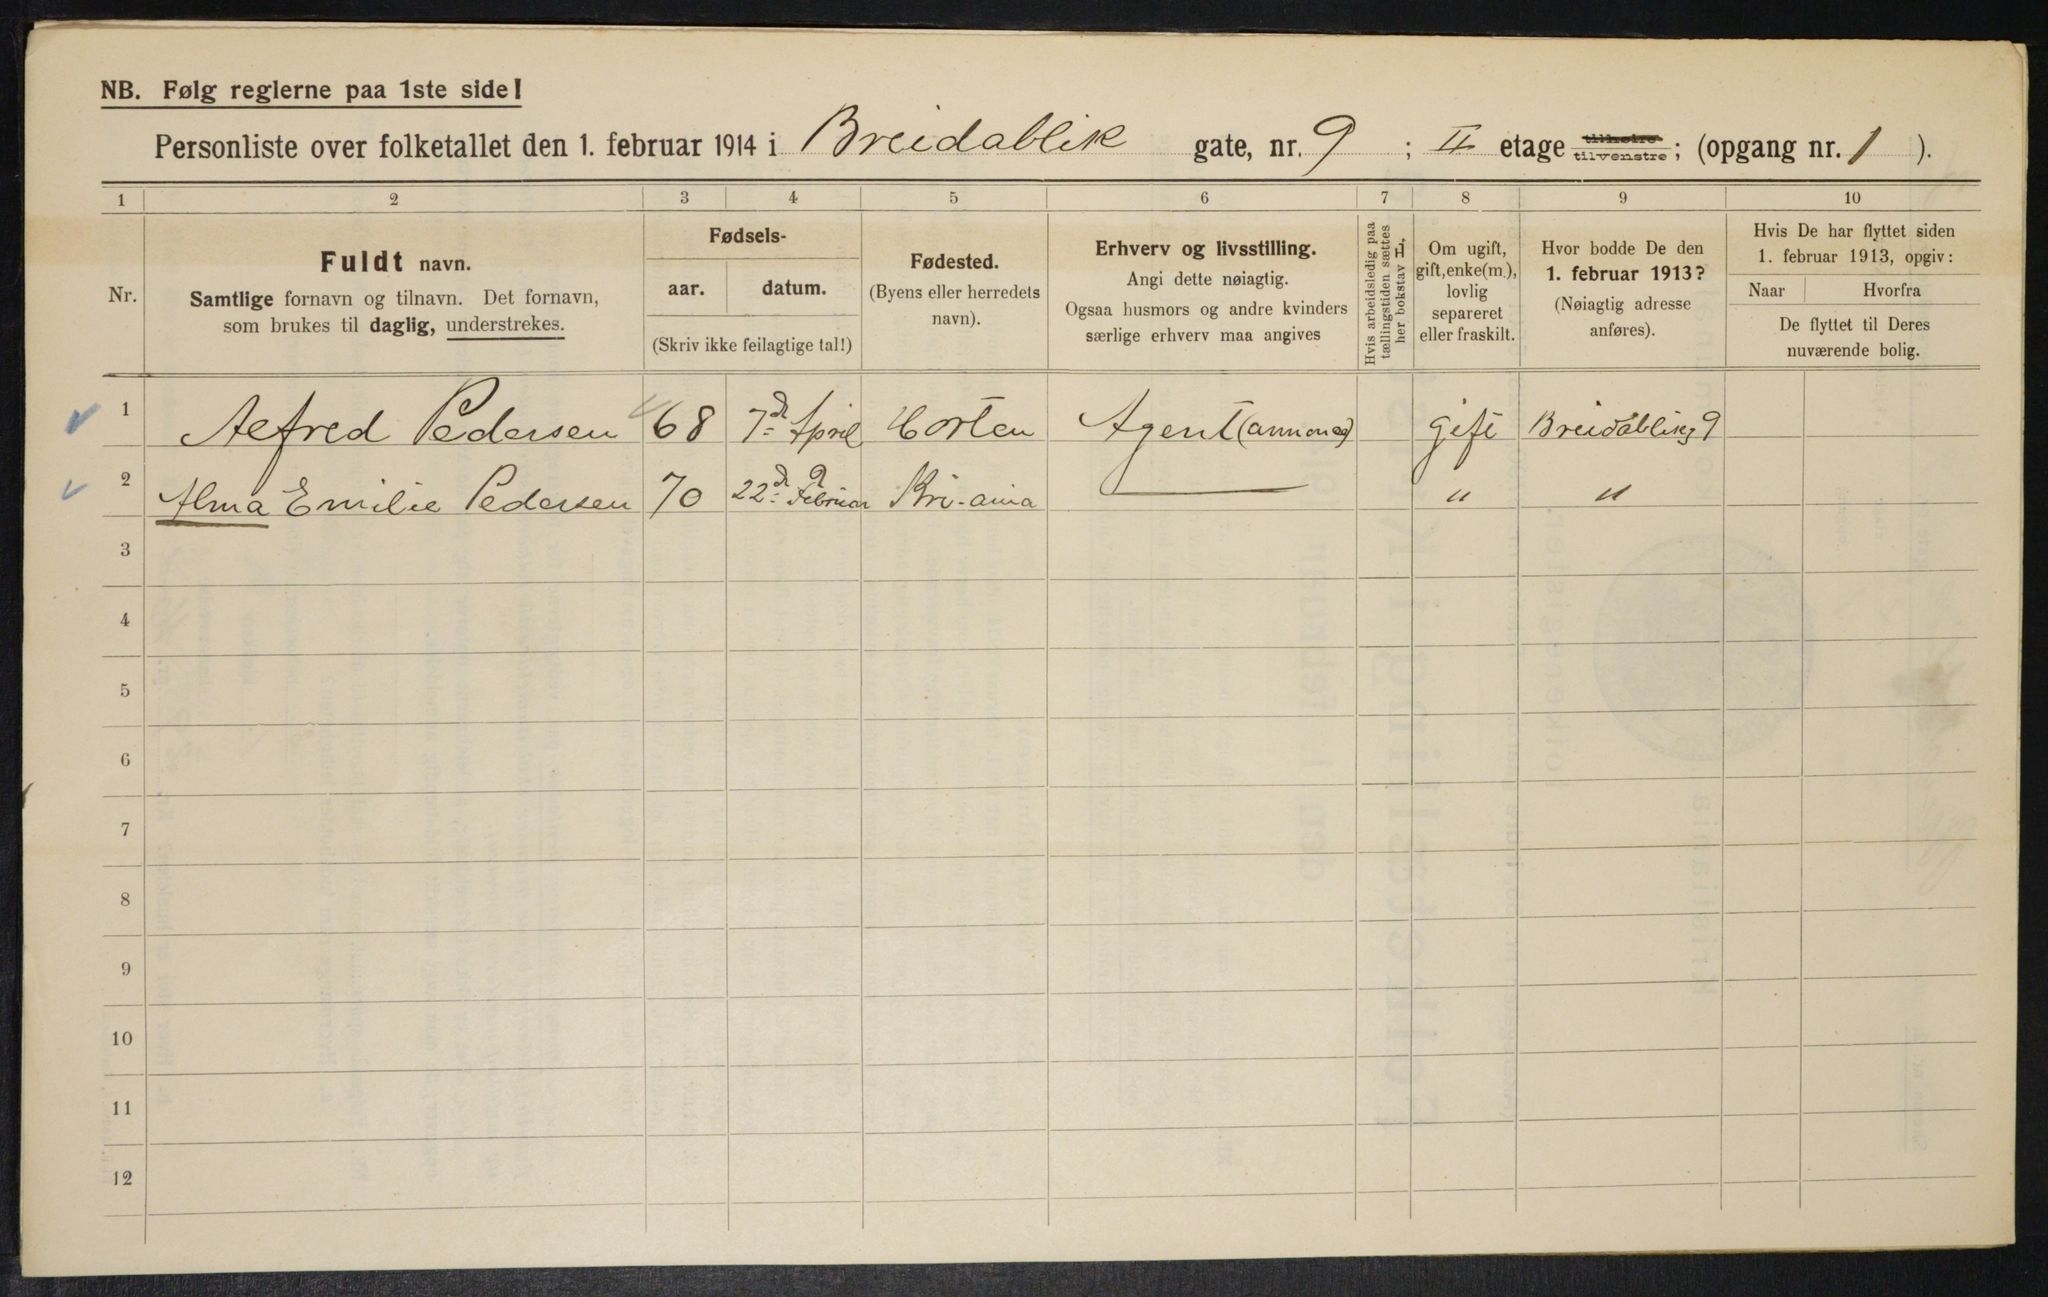 NB. Følg reglerne paa 1ste side!
Personliste over folketallet den 1. februar 1914 i Breidablik gate, nr. 9 ; II etage tilhøire tilvenstre ; (opgang nr. 1 ).
1 2 3 4 5 6 7 8 9 10
Nr.
Fuldt navn.
Samtlige fornavn og tilnavn. Det fornavn,
som brukes til daglig, understrekes.
Fødsels-
aar. datum.
(Skriv ikke feilagtige tal!)
Fødested.
(Byens eller herredets
navn).
Erhverv og livsstilling.
Angi dette nøiagtig.
Ogsaa husmors og andre kvinders
særlige erhverv maa angives
Hvis arbeidsledig paa
tællingstiden sættes
her bokstav H.
Om ugift,
gift, enke(m.),
lovlig
separeret
eller fraskilt.
Hvor bodde De den
1. februar 1913?
(Nøiagtig adresse
anføres).
Hvis De har flyttet siden
1. februar 1913, opgiv:
Naar Hvorfra
De flyttet til Deres
nuværende bolig.
1 Alfred Pedersen 68 7d April Horten Agent (annonce) gift Breidablikg 9
2 Alma Emilie Pedersen 70 22d Februar Kri-ania — " "
3
4
5
6
7
8
9
10
11
12